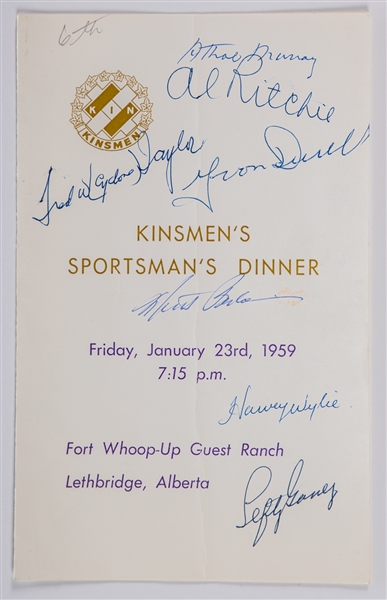 6th
Athol Murray
Al Ritchie
KIN
KINSMEN
Fred W (Cyclone) Taylor
Yvon Durelle
KINSMEN'S
SPORTSMAN'S DINNER
Friday, January 23rd, 1959
7:15 p.m.
Harvey Wylie.
Fort Whoop-Up Guest Ranch
Lethbridge, Alberta
Lefty Gomez